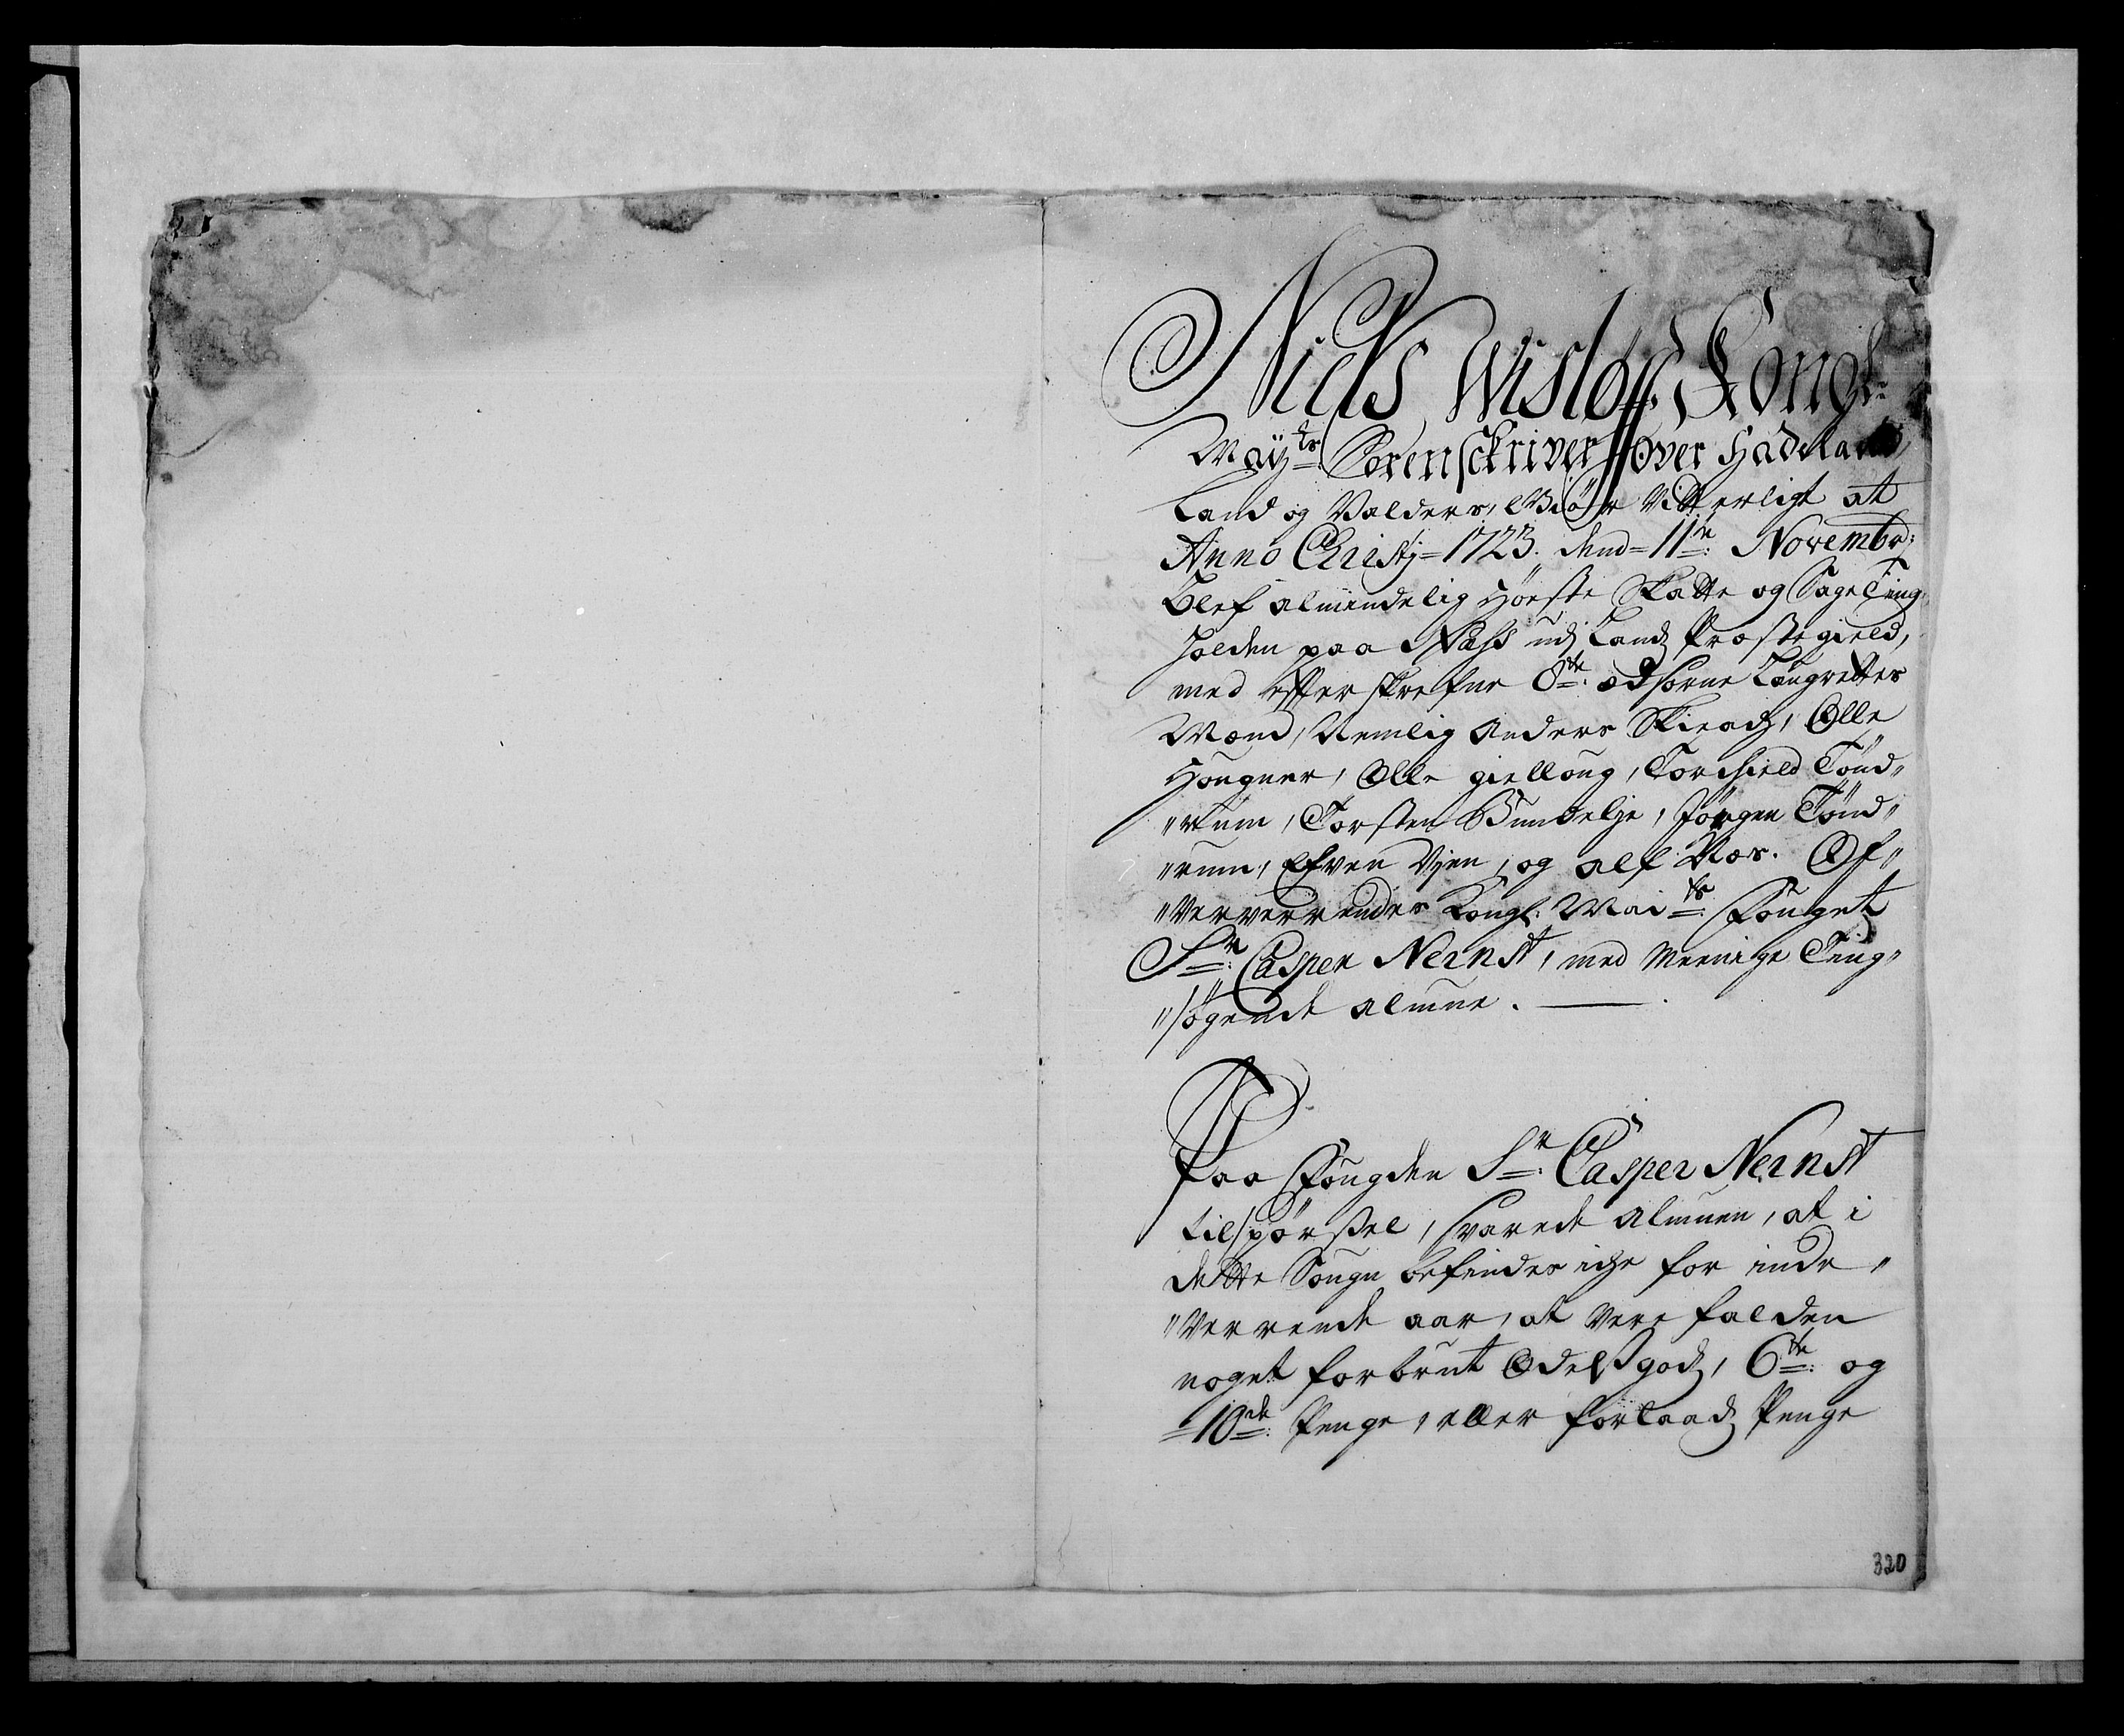 Niels Wisløff, Kongl:
Maÿ:ts Sorenschriver over Hadeland,
Land og Valders, Giør Vitterligt at
Anno Christj = 1723. dend = 11te: Novembr:
blef almindelig Høste Skatte og Sage Ting
holden paa Næss udj Landz Præstegield,
med effterskrefne 8te: Edsorne Laugrettes
Mænd, Nemlig Anders Skiradz, Olle
Hougner, Olle gielloug, Torchield Tønd„
„rum, Torsten Bundelje, Jørgen Tømd„
„rum, Efven Vjen, og Alf Næs. Of„
„Ververrendes Kongl: Mai:ts Fouget
Sr: Casper Nernst, med Meenige Ting„
„søgende Almue.
Paa Fougden Sr: Casper Nernst
tilspørssel, svarede Almuen, at i
dette Sougn befindes iche for inde„
„Verrende aar, at Vere falden
noget forbrut Odelssgodz, 6te: og
10de: Penge, eller Forlaadz Penge
320